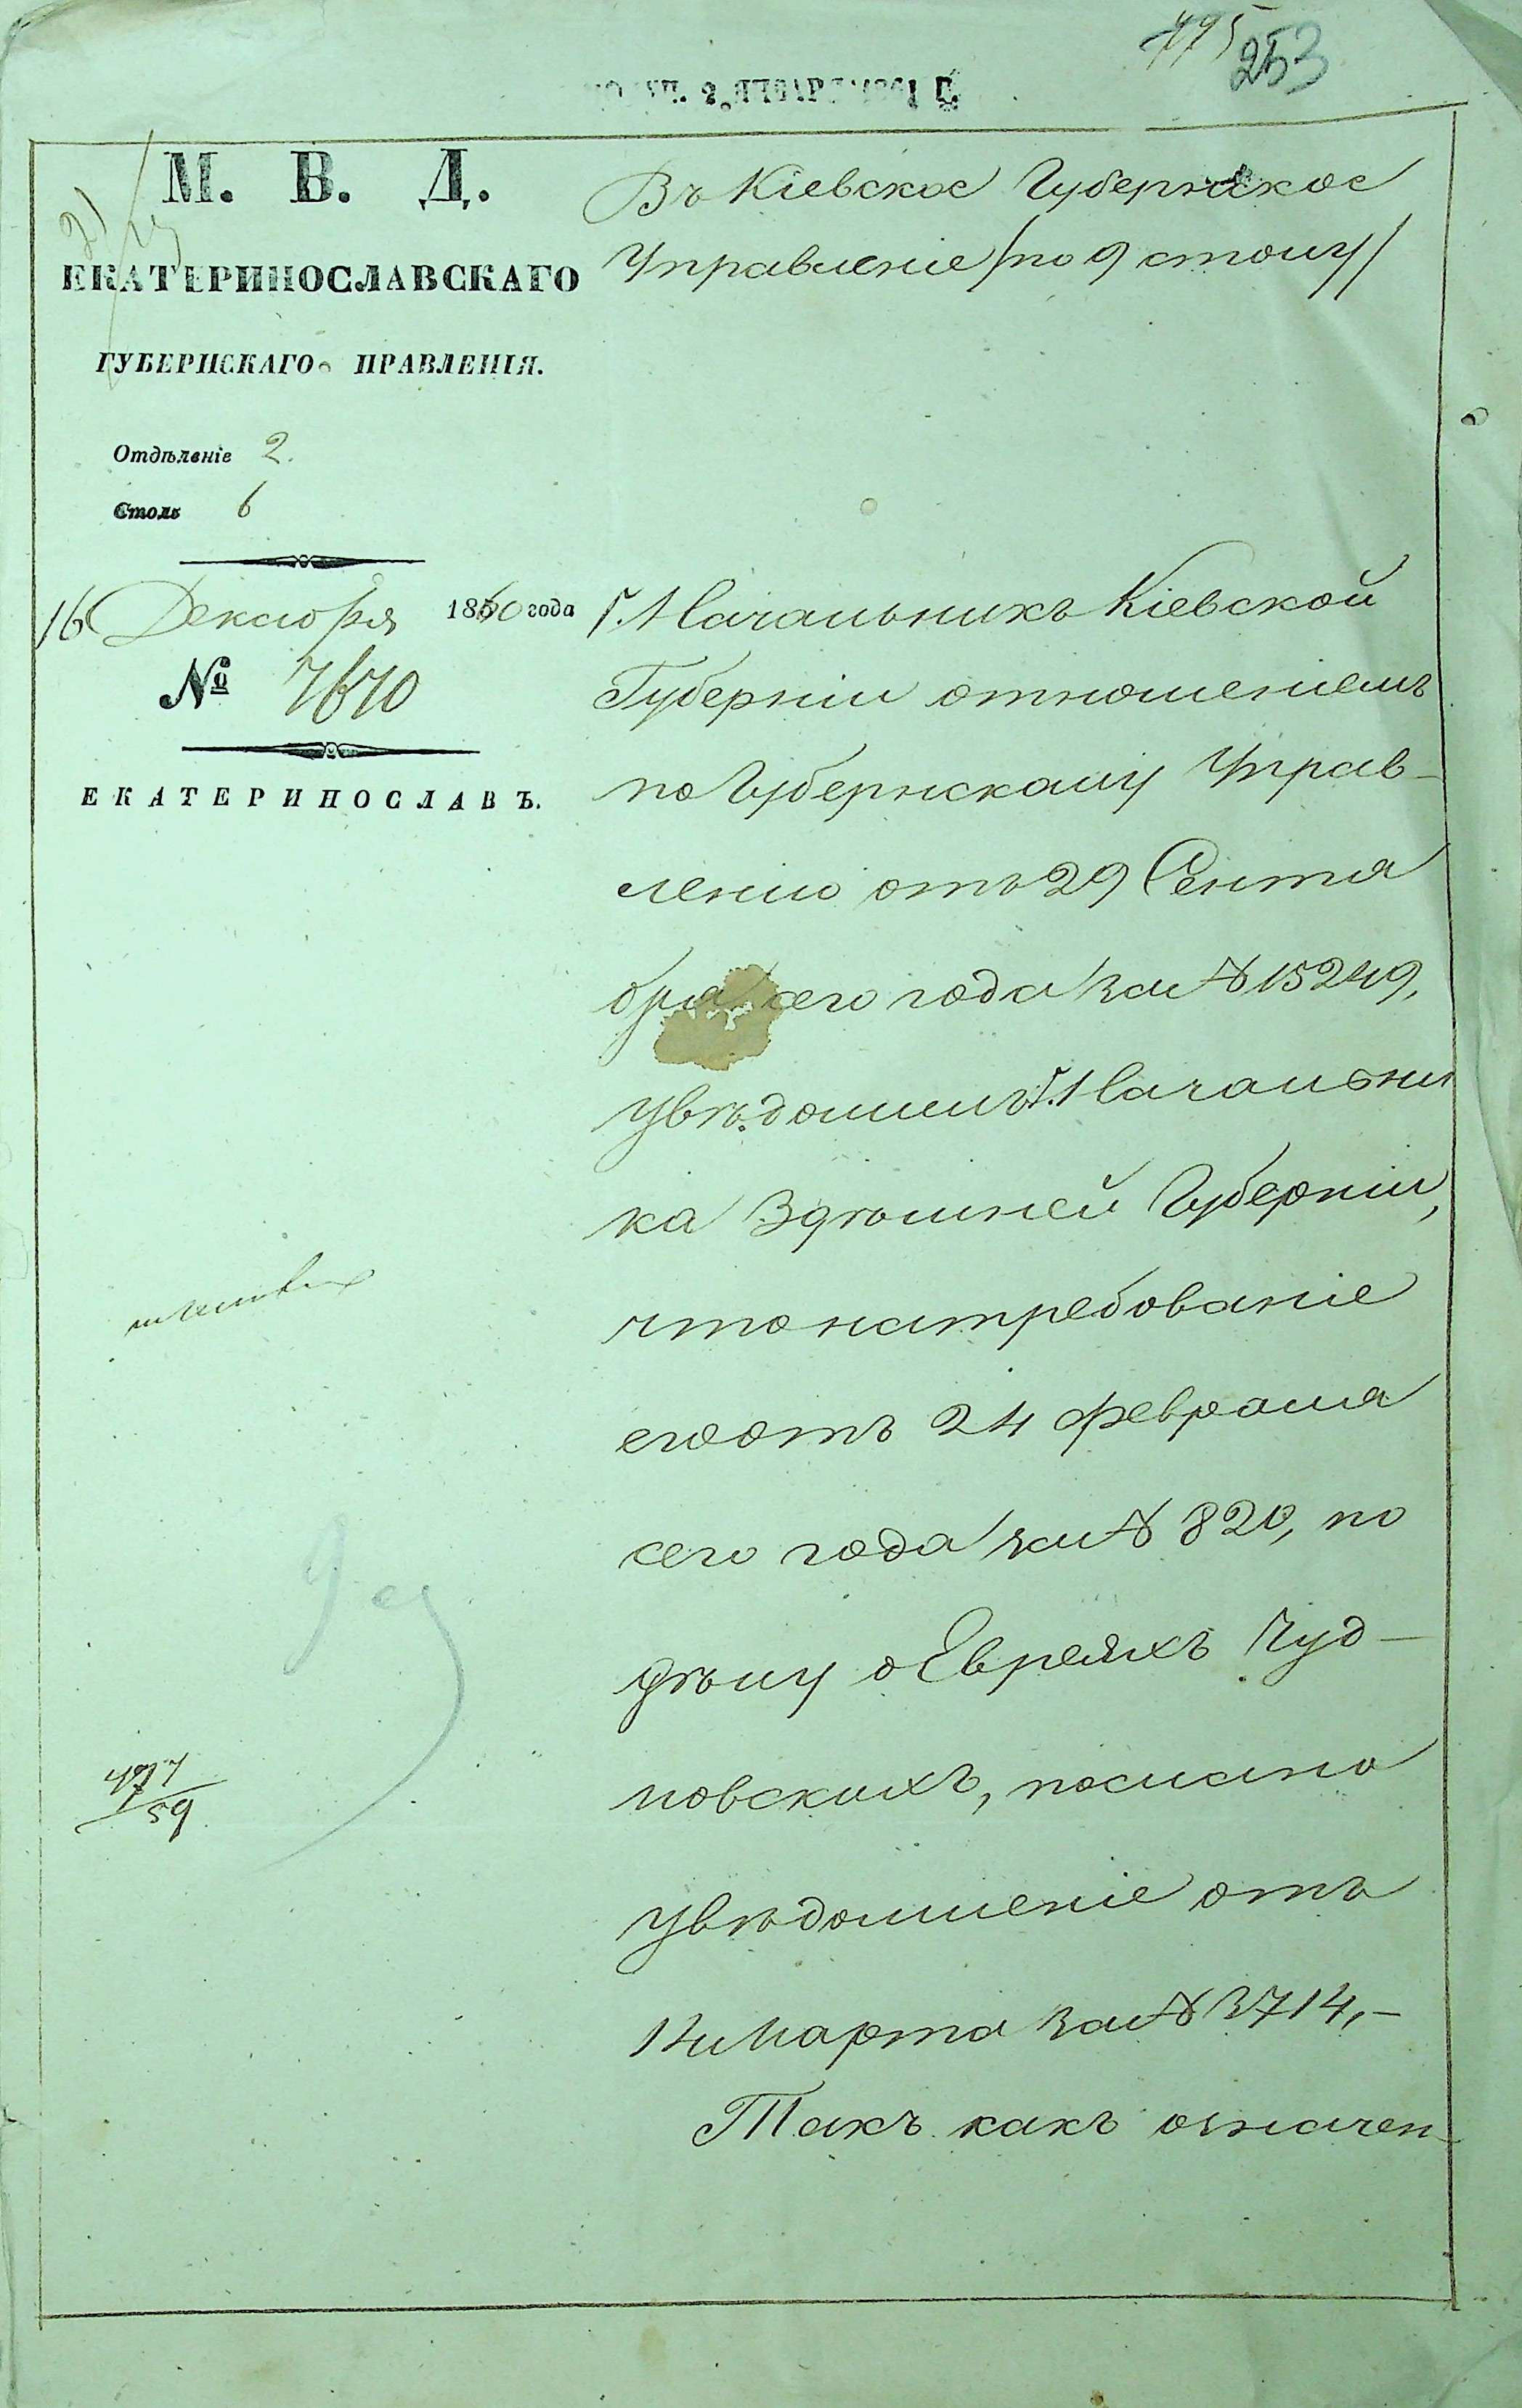 253
М. В. Д.
ЕКАТЕРИНОСЛАВСКАГО
ГУБЕРНСКАГО ПРАВЛЕНІЯ.
Отдѣленіе 2.
Столъ 6
16 Декабря 1860 года
№ 7670
ЕКАТЕРИНОСЛАВЪ.
Въ Кіевское Губернское
Управленіе /по 9 столу/
Г. Начальникъ Кіевской
Губерніи отношеніемъ
по Губернскому Управ-
ленію отъ 29 Сентя
бря сего года за № 15249,
увѣдомилъ Г. Начальни
ка Здѣшней Губерніи,
что на требованіе
его отъ 24 Февраля
сего года за № 820, по
дѣлу о Евреяхъ Чуд-
новскихъ, послано
увѣдомленіе отъ
14 Марта за № 3714,-
Такъ какъ означен-